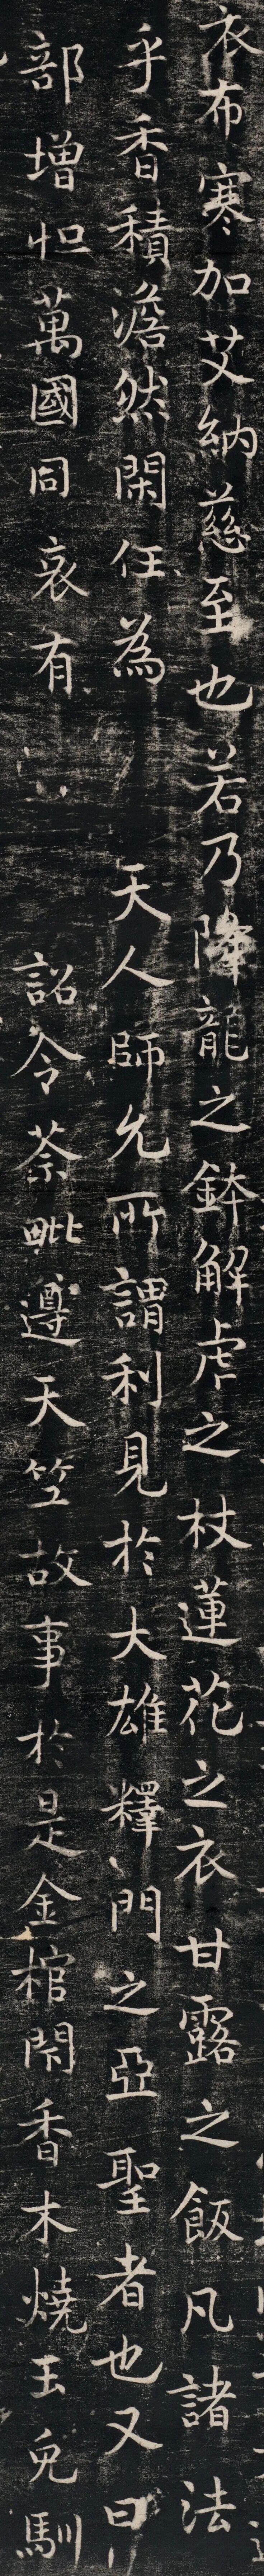 衣布寒加艾納慈至也若乃降龍之鉢解虎之杖蓮花之衣甘露之飯凡諸法
乎香積澹然閑任為天人師允所謂利見於大雄釋門之亞聖者也又曰
部增怛萬國同哀有詔令荼毗遵天竺故事於是金棺閇香木燒玉兔馴